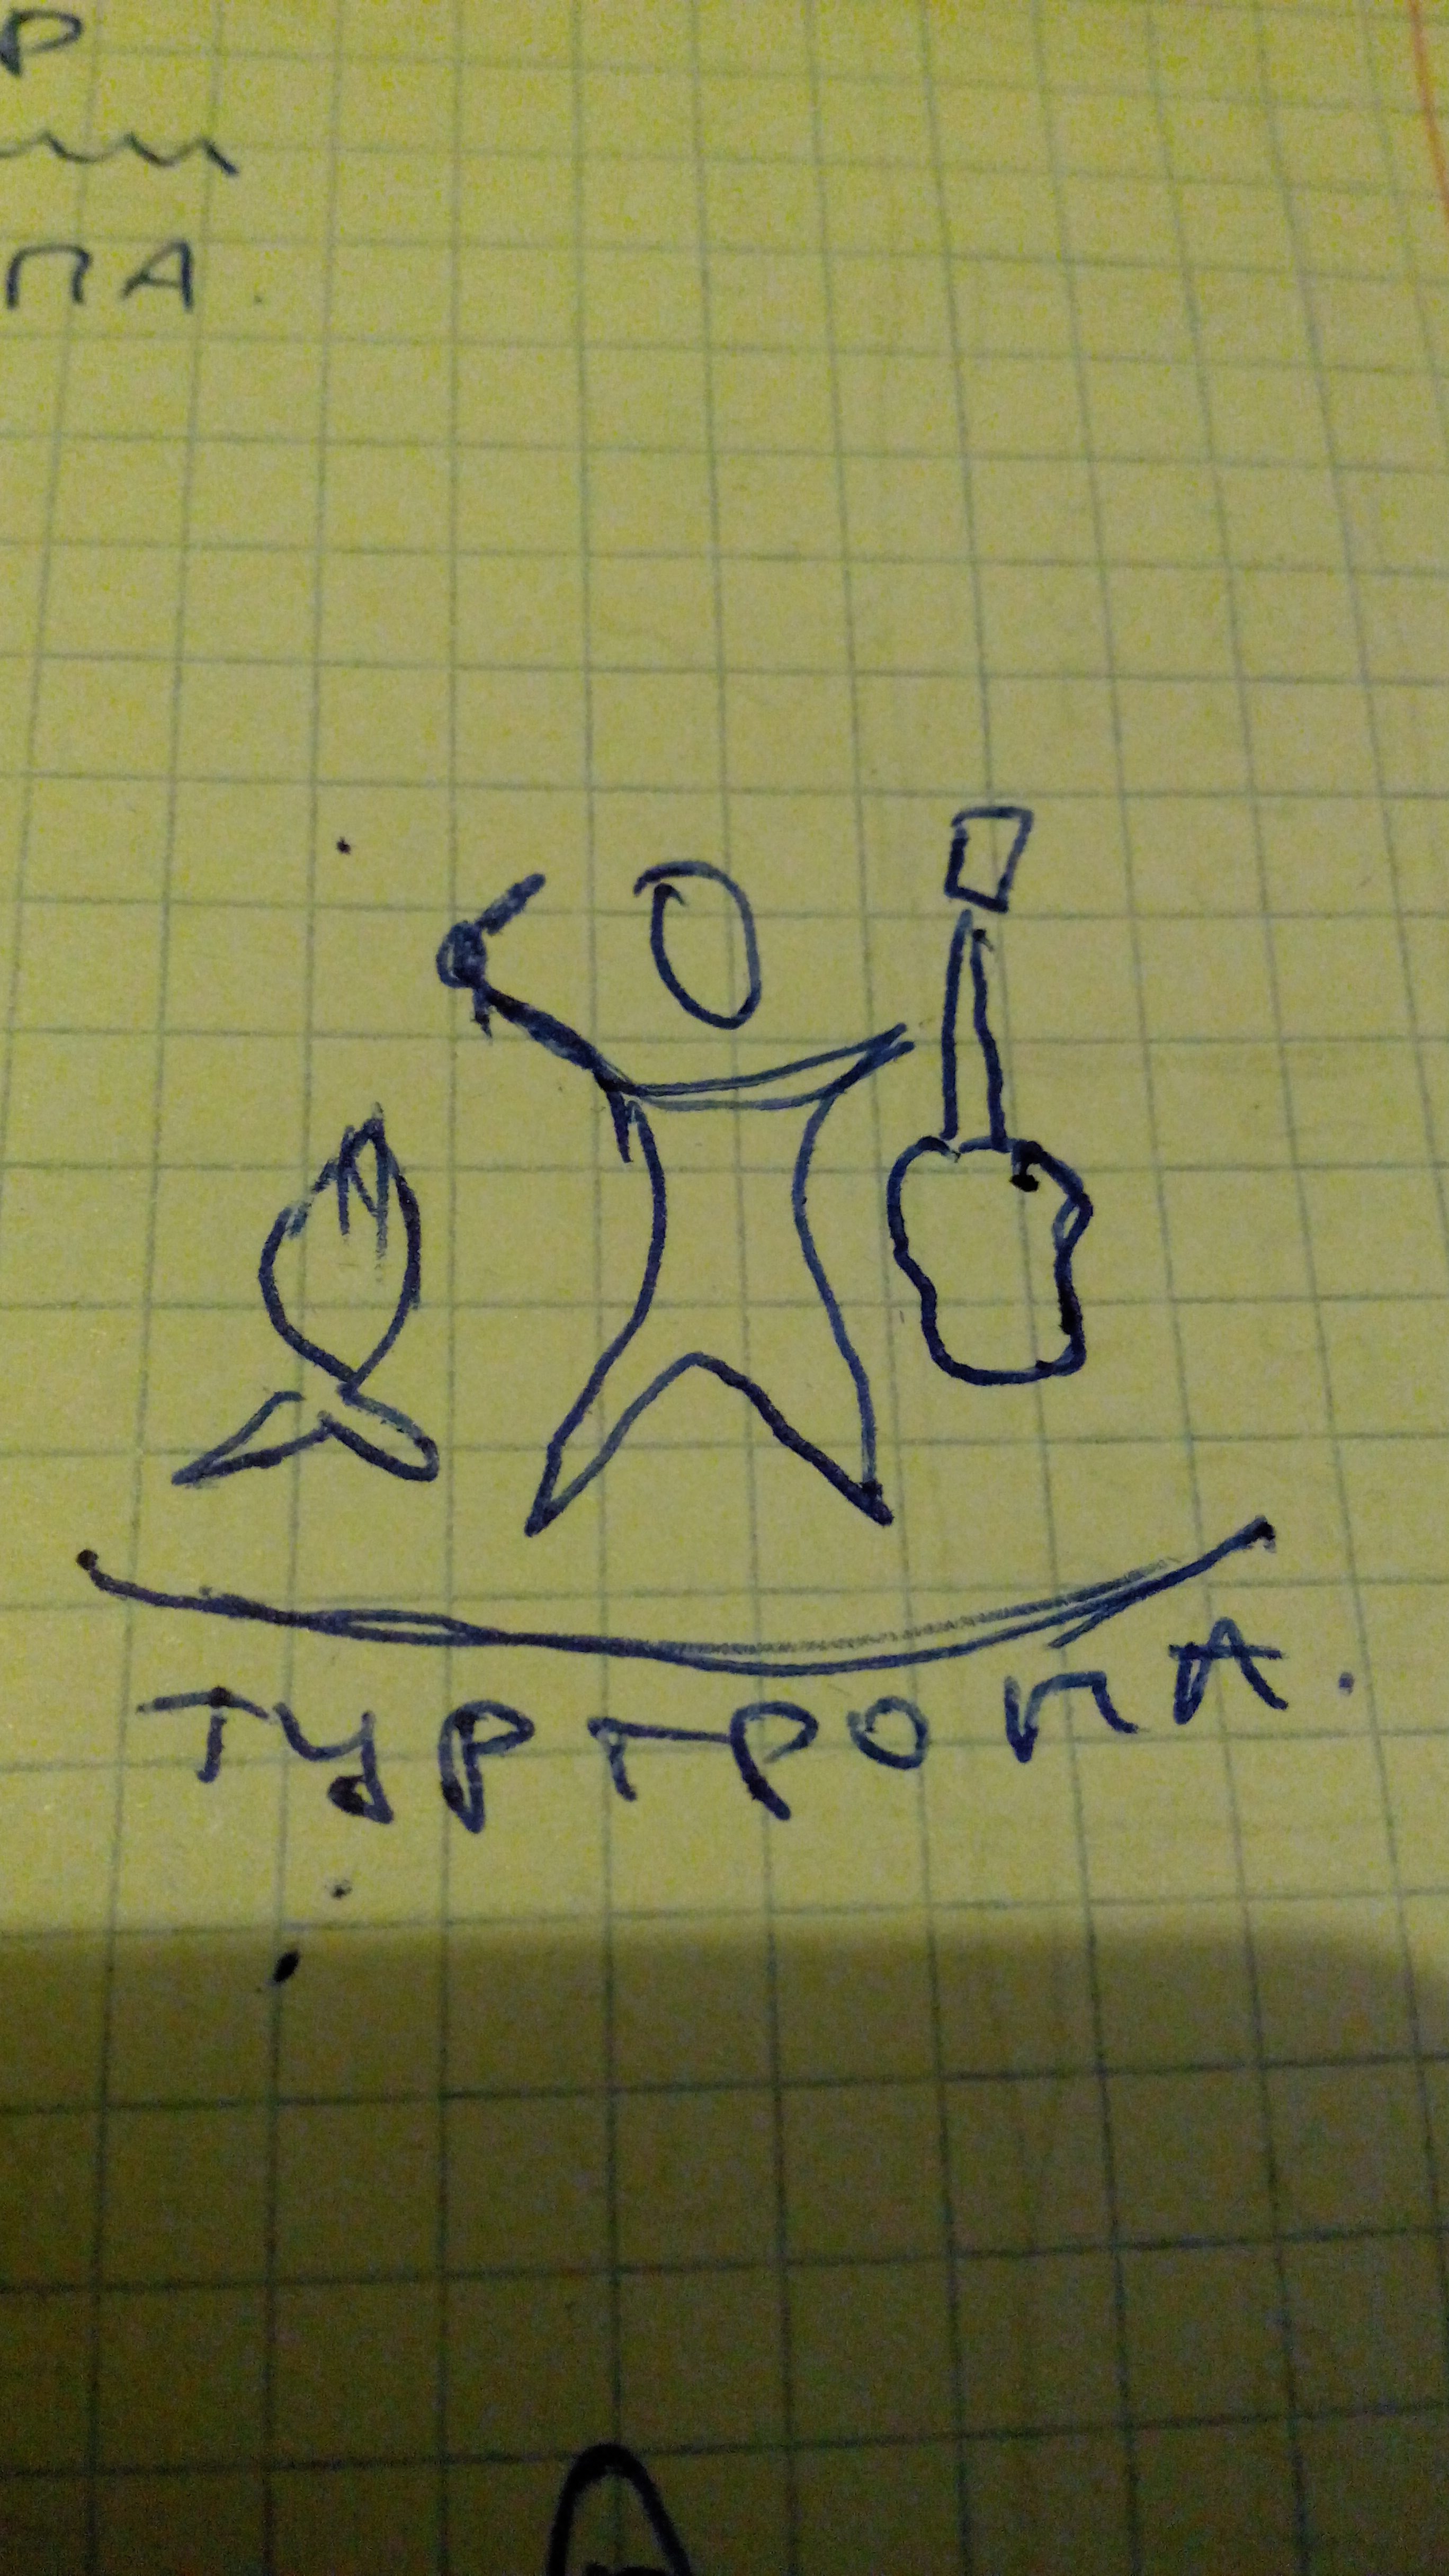 Р
ПА.
ТУРТРОПА.